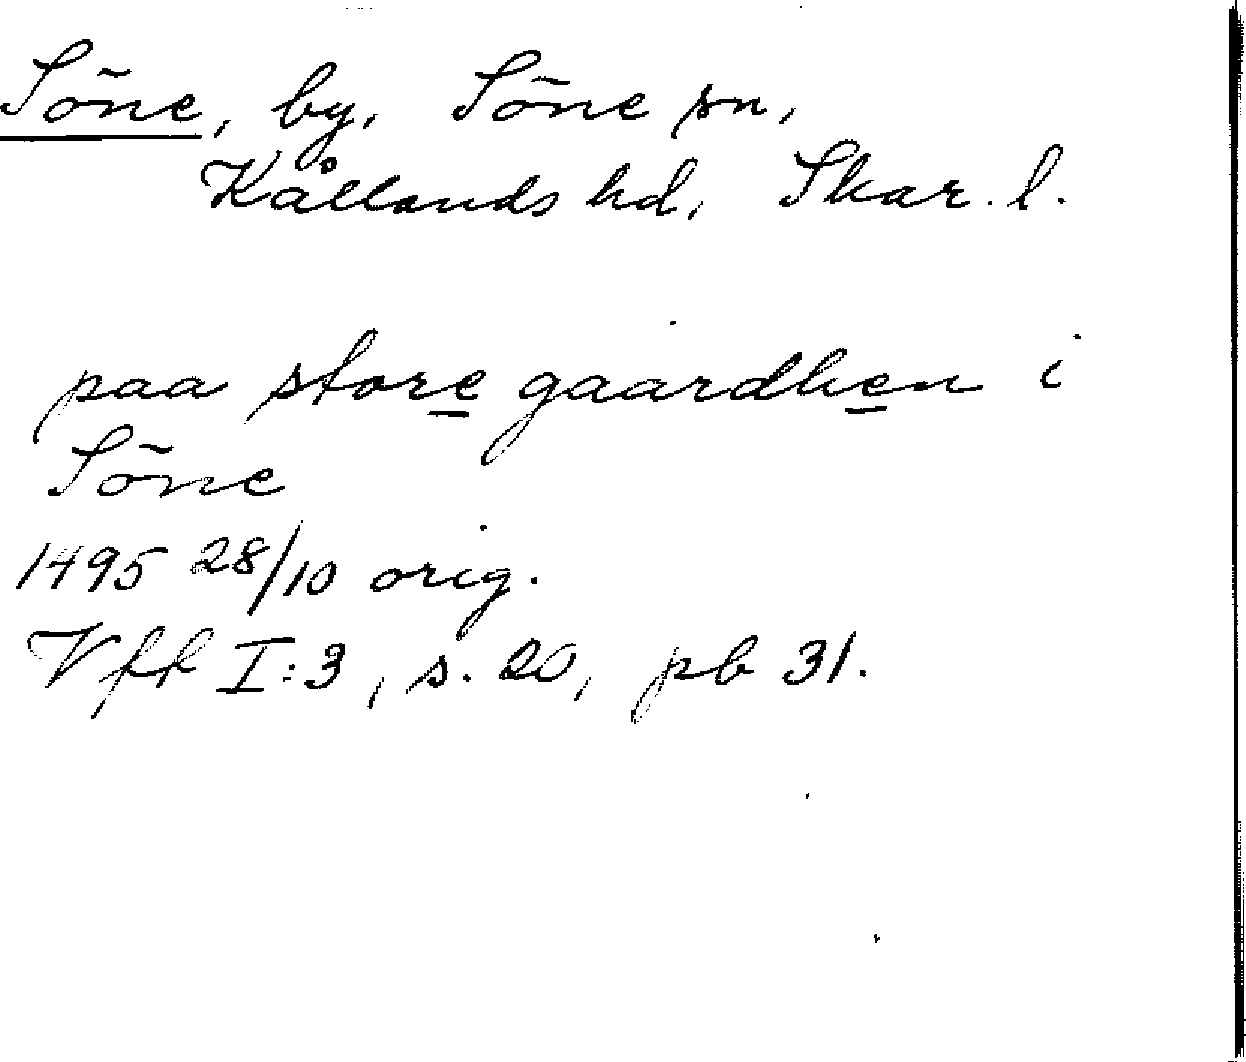 Söne, by, Söne sn,
Kållands hd, Skar. l.
paa store gaardhen i
Söne
1495 28/10 orig.
Vff I:3, s. 20, pb 31.